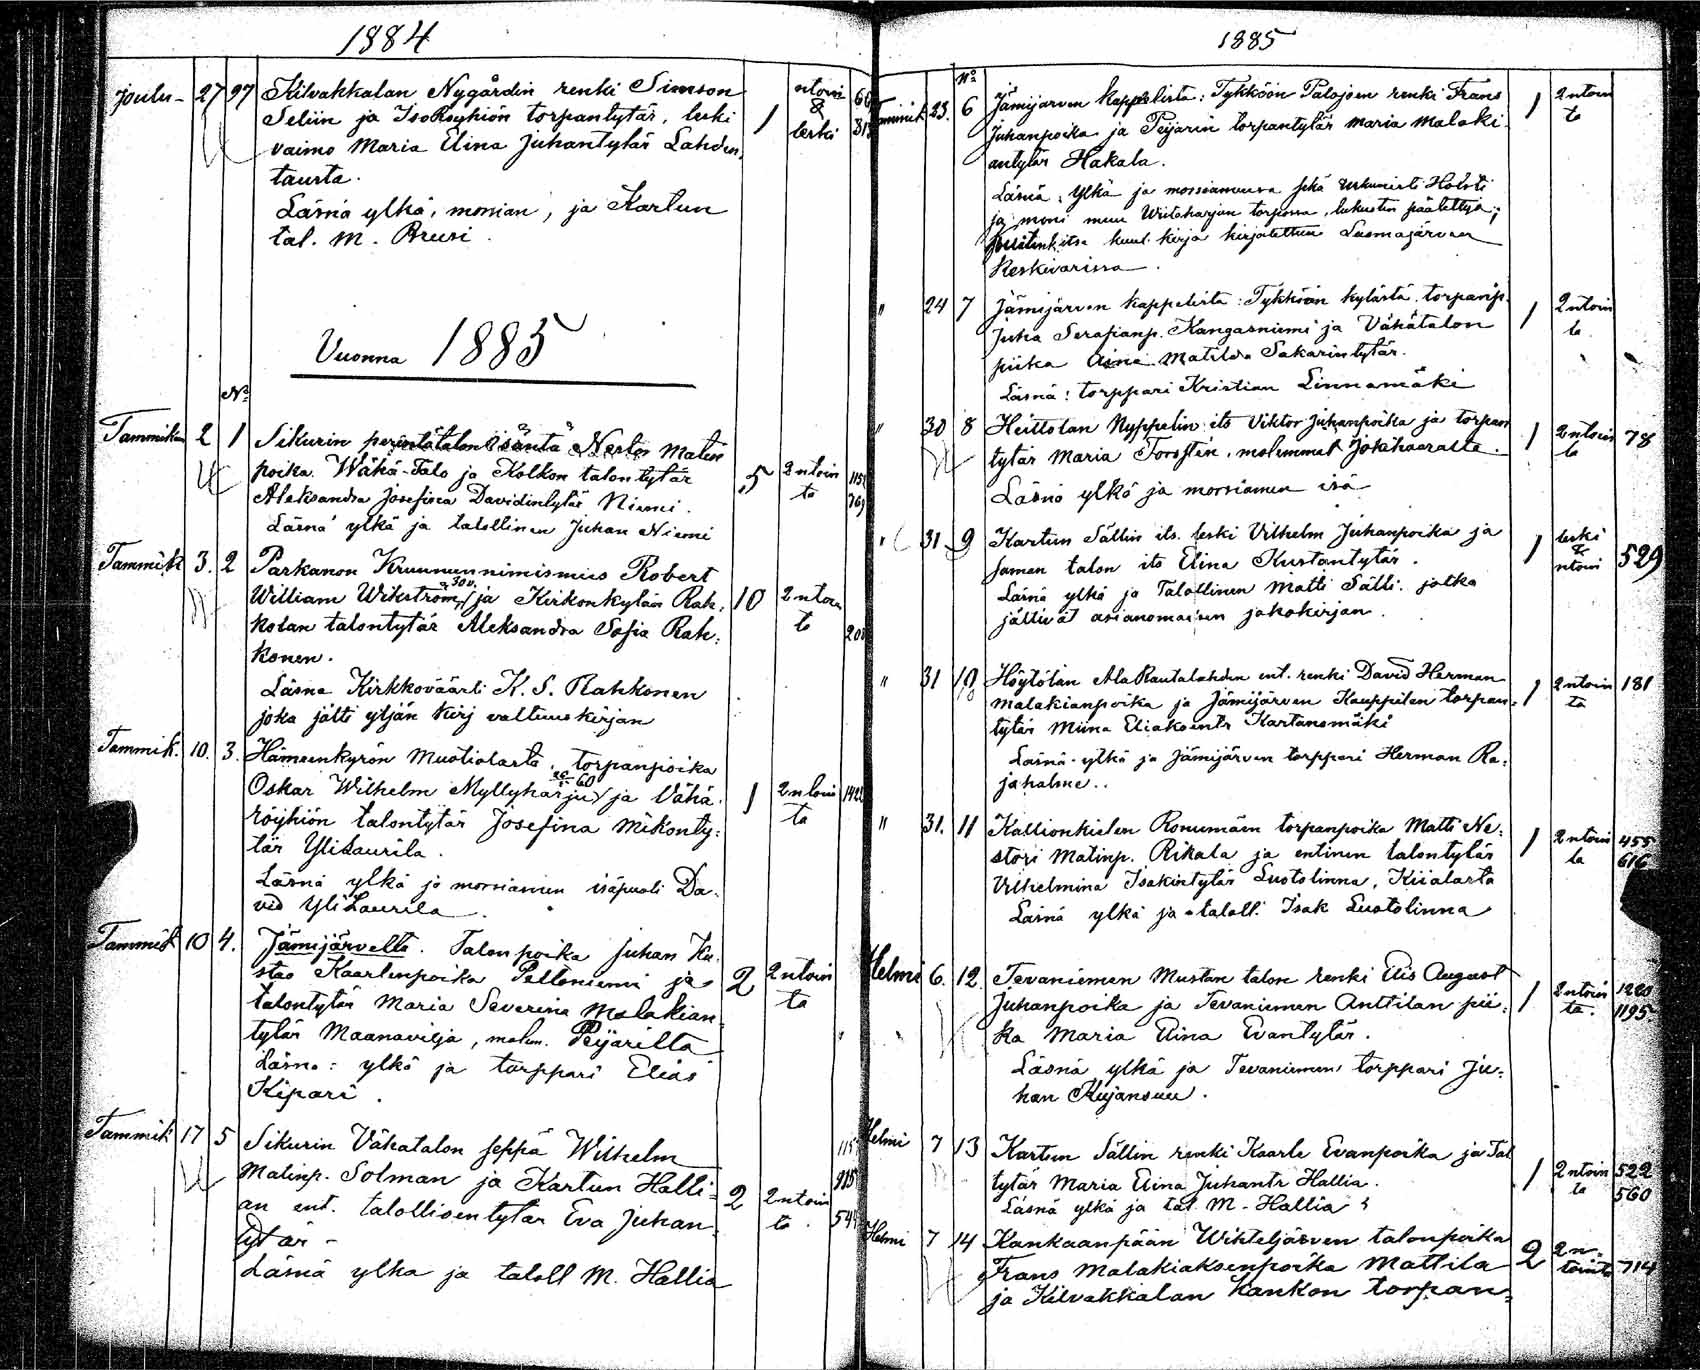 1884
Joulu- 27 97 Kilvakkalan Nygårdin renki Simson
Seliin ja IsoRöyhiön torpantytär, leski
vaimo Maria Elina Juhantytär Lahden,
tausta.
1 ntoin & leski
Läsnä ylkä, morsian, ja Kartun
tal. M. Bruusi.
Vuonna 1885
No
Tammikuu 2 1 Sikurin perintätalon isäntä Nestor Matin
poika Wähä-Talo ja Kolkon talontytär
5 2 ntoin
to
Aleksandra Josefina Davidintytär Niemi.
Läsnä ylkä ja talollinen Juhan Niemi
Tammik 3. 2 Parkanon Kruununnimismies Robert
William Wikström, 30 v. ja Kirkonkylän Rah,
10 2 ntoin
to
kolan talontytär Aleksandra Sofia Rah:
konen.
Läsnä Kirkkoväärti K. S. Rahkonen
joka jätti yljän kirj valtuuskirjan
Tammik. 10. 3. Hämeenkyrön Muotialasta, torpanpoika
Oskar Wilhelm Myllyharju ja Vähä.
1 2 ntoin
ta
röyhiön talontytär Josefina Mikonty:
tär YliLaurila.
Läsnä ylkä ja morsiamen isäpuoli Da.
vid YliLaurila.
Tammik 10 4. Jämijärveltä. Talonpoika Juhan Ku
staa Kaarlenpoika Peltoniemi ja
2 2 ntoin
ta
talontytär Maria Severina Malakian
tytär Maanavilja, molem. Peijarilta
Läsnä: ylkä ja torppari Elias
Kipari.
Tammik 17 5 Sikurin Vähatalon seppä Wilhelm
Matinp. Solman ja Kartun Halli
2 2 ntoin
to.
an ent. talollisentytär Eva Juhan
tytär -
Läsnä ylkä ja taloll M. Hallia
1885
No
Tammik 23. 6 Jämijärven kappelista: Tykköön Palojoen renki Frans
1 2 ntoin
to
Juhanpoika ja Peijarin torpantytär Maria Malaki
antytär Hakala.
Läsnä: Ylkä ja morsiamensa sekä Urkunisti Holsti
ja moni muu Wiitaharjun torpassa, lukusten päätettyä;
itse kuul. kirja kirjotettiin Luomajärven
Keskivarissa.
" 24 7 Jämijärven kappelista: Tykköön kylästä, torpanp.
1 2 ntoin
ta
Juha Serafianp. Kangasniemi ja Vähätalon
piika Aina Matilda Sakarintytär.
Läsnä: torppari Kristian Linnamäki
" 30 8 Heittolan Nyppelin its Viktor Juhanpoika ja torpan
1 2 ntoin
ta 78
tytär Maria Forsstén, molemmat Jokihaaralta.
Läsnä ylkä ja morsiamen isä
" 31 9 Kartun Sällin its. leski Vilhelm Juhanpoika ja
1 leski & ntoin 529
saman talon its Elina Kustantytär.
Läsnä ylkä ja Talollinen Matti Sälli. jotka
jättivät asianomaisen jakokirjan.
" 31 10 Höytölän AlaRautalahden ent. renki David Herman
1 2 ntoin
ta 181
Malakianpoika ja Jämijärven Kauppilan torpan=
tytär Miina Eliakimtr Kartanomäki
Läsnä ylkä ja Jämijärven torppari Herman Ra:
jahalme..
" 31. 11 Kallionkielen Ronumäen torpanpoika Matti Ne:
1 2 ntoin
ta 455
616
stori Matinp. Rikala ja entinen talontytär
Vilhelmina Isakintytär Luotolinna, Kiialasta
Läsnä ylkä ja taloll. Isak Luotolinna
Helmi 6. 12. Tevaniemen Mustan talon renki Elis August
1 2 ntoin
ta. 1220
1195
Juhanpoika ja Tevaniemen Anttilan pii:
ka Maria Elina Evantytär.
Läsnä ylkä ja Tevaniemen torppari Ju:
han Kujansuu.
Helmi 7 13 Kartun Sällin renki Kaarle Evanpoika ja Tal
1 2 ntoin
ta 522
560
tytär Maria Elina Juhantr Hallia.
Läsnä ylkä ja tal M. Hallia
Helmi 7 14 Kankaanpään Wihteljärven talonpoika
2 2 n.
tointa 714
Frans Malakiaksenpoika Mattila
ja Kilvakkalan Kankon torpan=